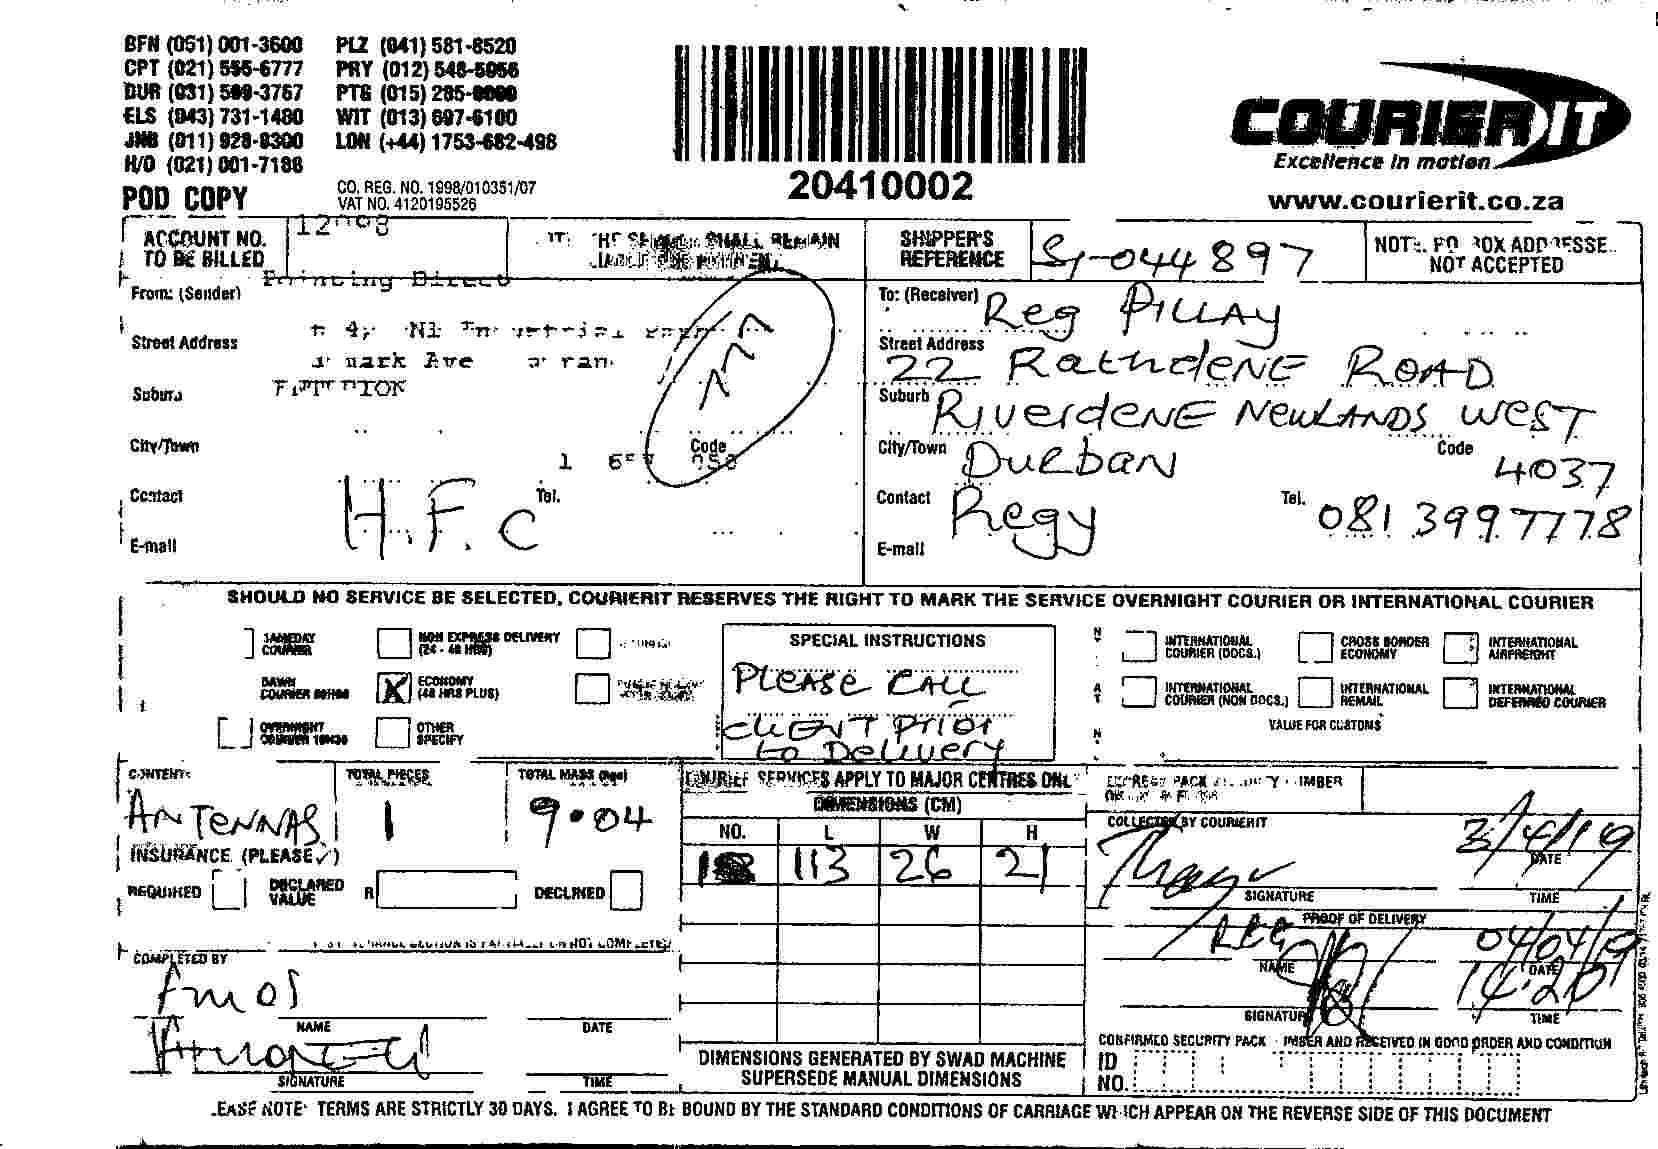 BFN (051) 001-3600 PLZ (041) 581-8520
CPT (021) 555-6777 PRY (012) 548-5056
DUR (031) 569-3757 PTG (015) 285-0000
ELS (043) 731-1480 WIT (013) 697-6100
JNB (011) 928-8300 LDN (+44) 1753-682-498
H/O (021) 001-7188
POD COPY
CO. REG. NO. 1998/010351/07
VAT NO. 4120195526
20410002
COURIER IT
Excellence in motion
www.courierit.co.za
ACCOUNT NO.
TO BE BILLED
SHALL REMAIN
SHIPPER'S
REFERENCE
SI-044897
NOT ACCEPTED
From: (Sender)
Street Address
Ave
Suburb
City/Town
Code
Contact
H.F.C
Tel.
E-mail
To: (Receiver) Reg PILLAY
Street Address
22 RathdeNE ROAD
Suburb RIVerdeNE NewLANDS WEST
City/Town Durban Code 4037
Contact Regy Tel. 081 3997778
E-mail
SHOULD NO SERVICE BE SELECTED, COURIERIT RESERVES THE RIGHT TO MARK THE SERVICE OVERNIGHT COURIER OR INTERNATIONAL COURIER
SAMEDAY
COURIER
NON EXPRESS DELIVERY
(24 - 48 HRS)
DAWN
COURIER
X
ECONOMY
(48 HRS PLUS)
OVERNIGHT
COURIER
OTHER
SPECIFY
SPECIAL INSTRUCTIONS
PLEASE CALL
CLIENT PRIOR
to Delivery
INTERNATIONAL
COURIER (DOCS.)
CROSS BORDER
ECONOMY
INTERNATIONAL
AIRFREIGHT
INTERNATIONAL
COURIER (NON DOCS.)
INTERNATIONAL
REMAIL
INTERNATIONAL
DEFERRED COURIER
VALUE FOR CUSTOMS
CONTENTS
ANTENNAS
TOTAL PIECES
1
TOTAL MASS (kgs)
9.04
INSURANCE (PLEASE ✓)
REQUIRED
DECLARED
VALUE
R
DECLINED
COMPLETED BY
Amos
NAME
DATE
SIGNATURE
TIME
COURIER SERVICES APPLY TO MAJOR CENTRES ONLY
DIMENSIONS (CM)
NO. L W H
1 113 26 21
DIMENSIONS GENERATED BY SWAD MACHINE
SUPERSEDE MANUAL DIMENSIONS
COLLECTED BY COURIERIT
3/4/19
DATE
SIGNATURE
TIME
PROOF OF DELIVERY
REG
04/04/19
NAME
DATE
14:20
SIGNATURE
TIME
CONFIRMED SECURITY PACK NUMBER AND RECEIVED IN GOOD ORDER AND CONDITION
ID
NO.
TERMS ARE STRICTLY 30 DAYS. I AGREE TO BE BOUND BY THE STANDARD CONDITIONS OF CARRIAGE WHICH APPEAR ON THE REVERSE SIDE OF THIS DOCUMENT